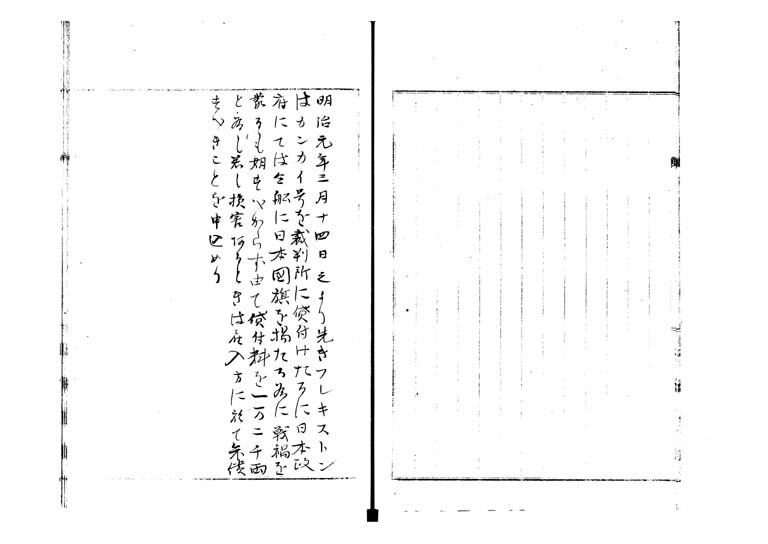 明治元年三月十四日之より先きフレキストン
はカンカイ号を裁判所に貸付けたるに日本政
府にては全船に日本國旗を揚たる為に戦禍を
るも期すへからす由て貸付料を一万二千両
と為し若し損害あるときは借入方に於て弁償
すべきことを申込めり